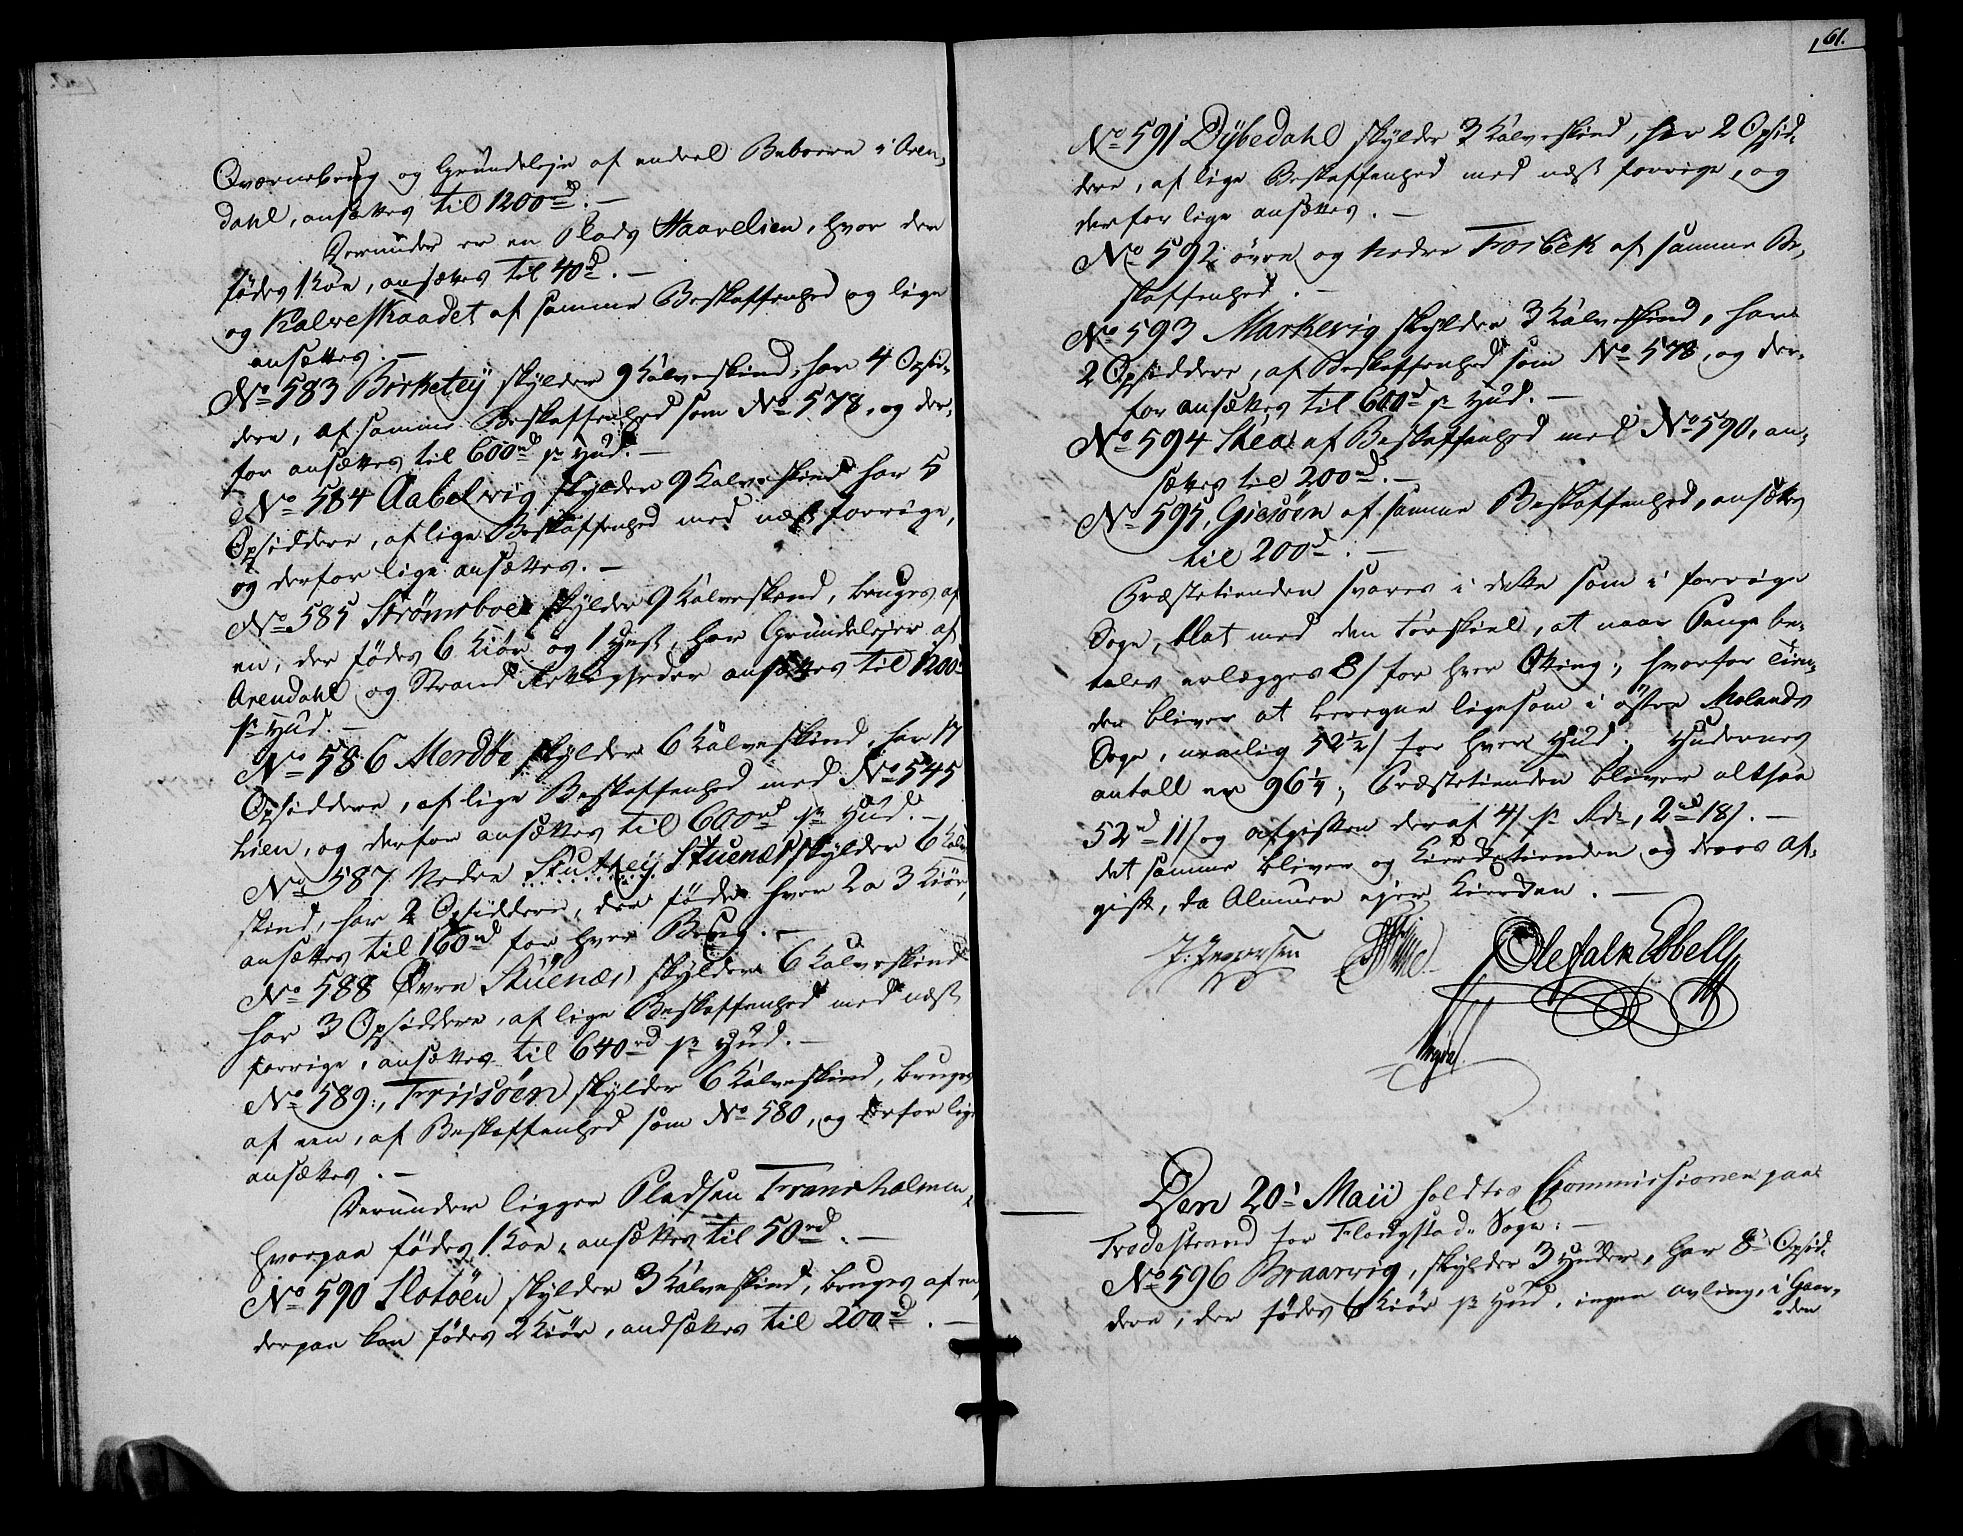 Qværnebrug og Grundeleje af endeel Beboere i Aren-
dahl, ansættes til 1200rd. —
Derunder er en Plads Haavelien, hvor der
fødes 1 Koe, ansættes til 40rd. —
og Kalveskaadet af samme Beskaffenhed og lige
ansættes. —
No 583 Birketey skylder 9 Kalveskind, har 4 Opsid-
dere, af samme Beskaffenhed som No 578, og der-
for ansættes til 600rd pr Hud. —
No 584 Aabelvig skylder 9 Kalveskind har 5
Opsiddere, af lige Beskaffenhed med næst forrige,
og derfor lige ansættes. —
No 585 Strømsboe skylder 9 Kalveskind, bruges af
en, der fødes 6 Kiør og 1 Hest, har Grundelejer af
Arendahl og Strand Herligheder ansættes til 1200rd
pr Hud. —
No 586 Merdøe skylder 6 Kalveskind, har 17
Opsiddere, af lige Beskaffenhed med No 545
Lien, og derfor ansættes til 600rd pr Hud. —
No 587 Nedre Stuenæs skylder 6 Kalv-
skind, har 2 Opsiddere, der føder hver 2 a 3 Kiør,
ansættes til 160rd for hver Brug. —
No 588 Øvre Stuenæs skylder 6 Kalveskind
har 3 Opsiddere, af lige Beskaffenhed med næst
forrige, ansættes til 640rd pr Hud. —
No 589, Friisøen skylder 6 Kalveskind, bruges
af een, af Beskaffenhed som No 580, og derfor lige
ansættes. —
Derunder ligger Pladsen Fransholmen,
hvorpaa fødes 1 Koe, ansættes til 50rd. —
No 590 Flotøen skylder 3 Kalveskind, bruges af en,
derpaa kan fødes 2 Kiør, andsættes til 200rd. —
61.
No 591 Dybedahl skylder 3 Kalveskind, har 2 Opsid-
dere, af lige Beskaffenhed med næst forrige, og
derfor lige ansættes. —
No 592 øvre og Nedre Torbek af samme Be-
skaffenhed. —
No 593 Markevig skylder 3 Kalveskind, har
2 Opsiddere, af Beskaffenhed som No 578, og der-
for ansættes til 600rd pr Hud. —
No 594 Skea af Beskaffenhed med No 590, an-
sættes til 200rd. —
No 595, Giesøen af samme Beskaffenhed, ansættes
til 200rd. —
Præstetienden svares i dette som i forrige
Sogn, blot med den Forskiel, at naar Penge be-
tales erlægges 8/ for hver Setting; hvorfor Tien-
den bliver at beregne ligesom i østre Molands
Sogn, nemlig 52½/ for hver Hud; Hudernes
antall er 96¼; Præstetienden bliver altsaa
52rd 11/ og afgivten deraf 4/ pr Rdr, 2rd 18/. —
det samme bliver og Kierketienden og deres Af-
givt, da Almuen ejer Kierken. —
Ole Falk Ebbell
Den 20de Maii holdtes Commissionen paa
Tvedestrand for Flougstads Sogn: —
No 596 Braarvig, skylder 3 Huder, har 8 Opsid-
dere, der fødes 6 Kiør pr Hud, ingen avling, i Gaar-
den